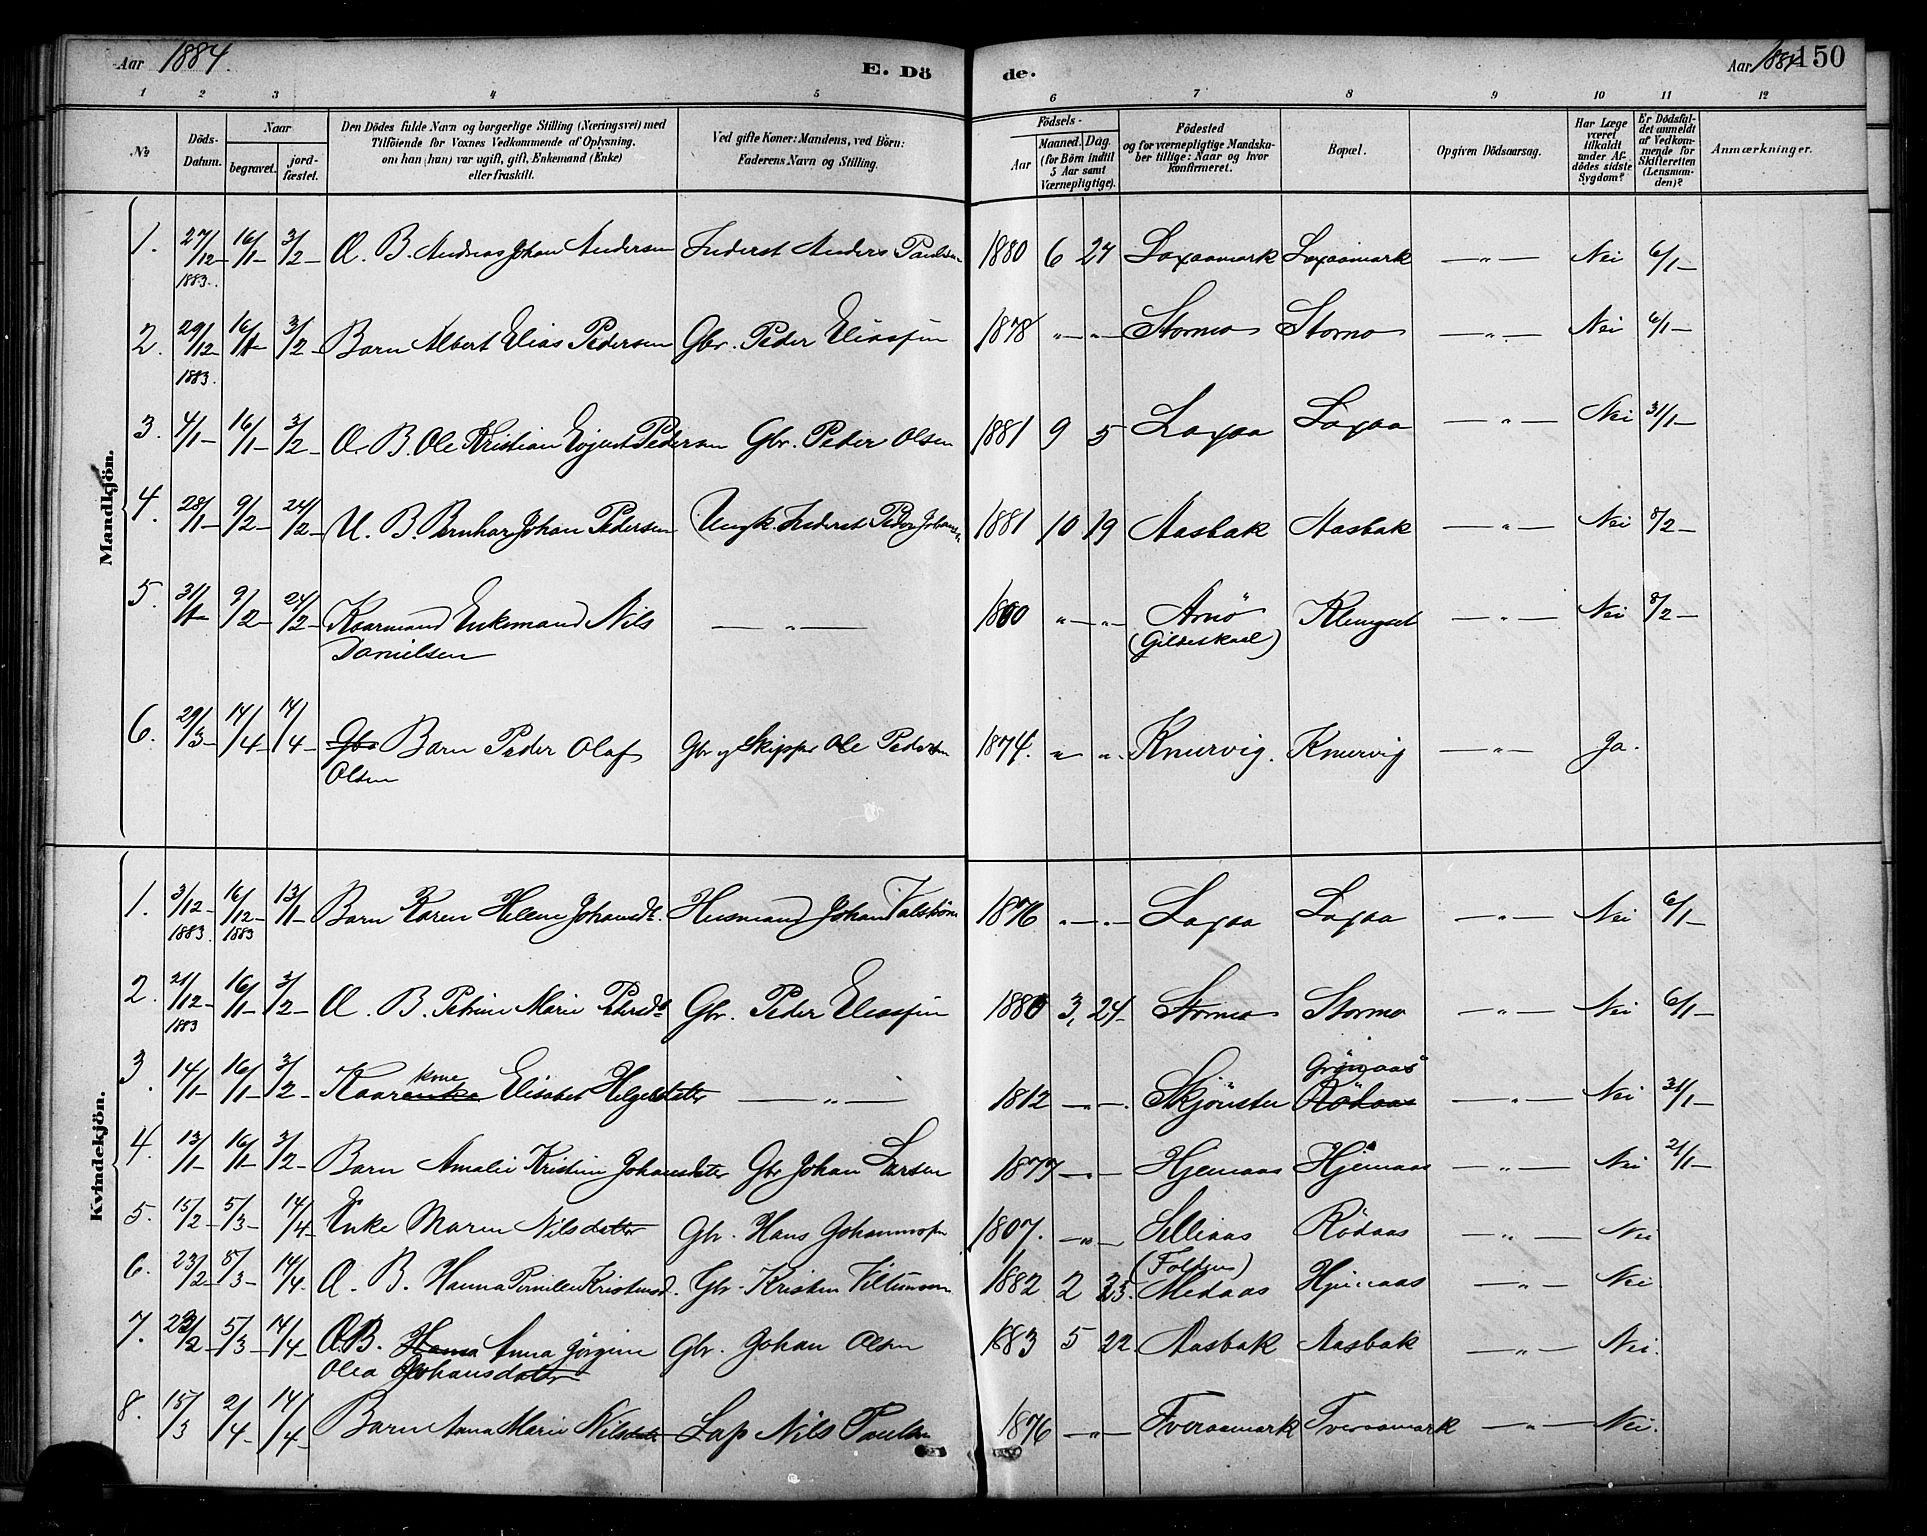 Aar 1884. E. Dö de. Aar 1884 150
1 2 3 4 5 6 7 8 9 10 11 12
No Döds-Datum. Naar begravet. jordfæstet. Den Dödes fulde Navn og borgerlige Stilling (Næringsvei) med Tilföiende for Voxnes Vedkommende af Oplysning, om han (hun) var ugift, gift, Enkemand (Enke) eller fraskilt. Ved gifte Koner: Mandens, ved Börn: Faderens Navn og Stilling. Födsels- Aar Maaned. Dag. (for Börn indtil 5 Aar samt Værnepligtige). Födested og for værnepligtige Mandskaber tillige: Naar og hvor konfirmeret. Bopæl. Opgiven Dödsaarsag. Har Læge været tilkaldt under Afdödes sidste Sygdom? Er Dödsfaldet anmeldt af Vedkommende for Skifteretten (Lensmanden)? Anmærkninger.
Mandkjön.
1. 27/12 1883. 16/1 3/2 Æ. B. Andreas Johan Andersen Inderst Anders Paulsen 1880 6 27 Laxaamark Laxaamark —"— Nei 6/1
2. 29/12 1883. 16/1 3/2 Barn Albert Elias Pedersen Gbr. Peder Eliassen 1878 " " Stormo Stormo —"— Nei 6/1
3. 4/1 16/1 3/2 Æ. B. Ole Kristian Pedersen Gbr. Peder Olsen 1881 9 5 Laxaa Laxaa —"— Nei 31/1
4. 28/1 9/2 24/2 U. B. Bernhar Johan Pedersen Ungk. Inderst Peder Johansen 1881 10 19 Aasbak Aasbak —"— Nei 8/2
5. 31/1 9/2 24/2 Kaarmand Enkemand Nils —"— 1800 " " Arnö Klungset —"— Nei 8/2
Danielsen (Gildeskaal)
6. 29/3 14/4 14/4 Gbr Barn Peder Olaf Gbr og Skipper Ole Pedersen 1874. " " Knurvig. Knurvig —"— Ja.
Olsen
Kvindekjön.
1. 3/12 1883 16/12 1883 13/1 Barn Karen Helene Johansdt. Husmand Johan 1876 " " Laxaa Laxaa —"— Nei 6/1
2. 21/12 1883 16/1 3/2 Æ. B. Petrine Marie Pedersdt Gbr. Peder Eliassen 1880 3, 24 Stormo Stormo —"— Nei 6/1
3. 14/1 16/1 3/2 Kaarenke kone Elisabet Helgesdatter —"— 1812 Skjönsten Rödaas Grönaas —"— Nei 31/1
4. 13/1 16/1 3/2 Barn Amalie Kristine Johansdatter Gbr Johan Larsen 1877 Hjemaas Hjemaas —"— Nei 21/1
5. 15/2 5/3 14/4 Enke Maren Nilsdatter Gbr. Hans Johannessen 1807. —"— Selliaas Rödaas —"— Nei
(Folden)
6. 23/2 8/3 14/4 Æ. B. Hanna Pernille Kristensd. Gbr. Kristen 1882 2 23. Medaas Hjemaas —"— Nei
7. 23/2 5/3 14/4 Æ.B. Hansa Anna Jörgine Gbr. Johan Olsen 1883 5 22 Aasbak Aasbak —"— Nei.
Olea Johansdatter
8. 15/3 2/4 14/4 Barn Anna Marie Nilsdatter Lap Nils Paulsen 1876 —"— Tveraamark Tveraamark —"— Nei.